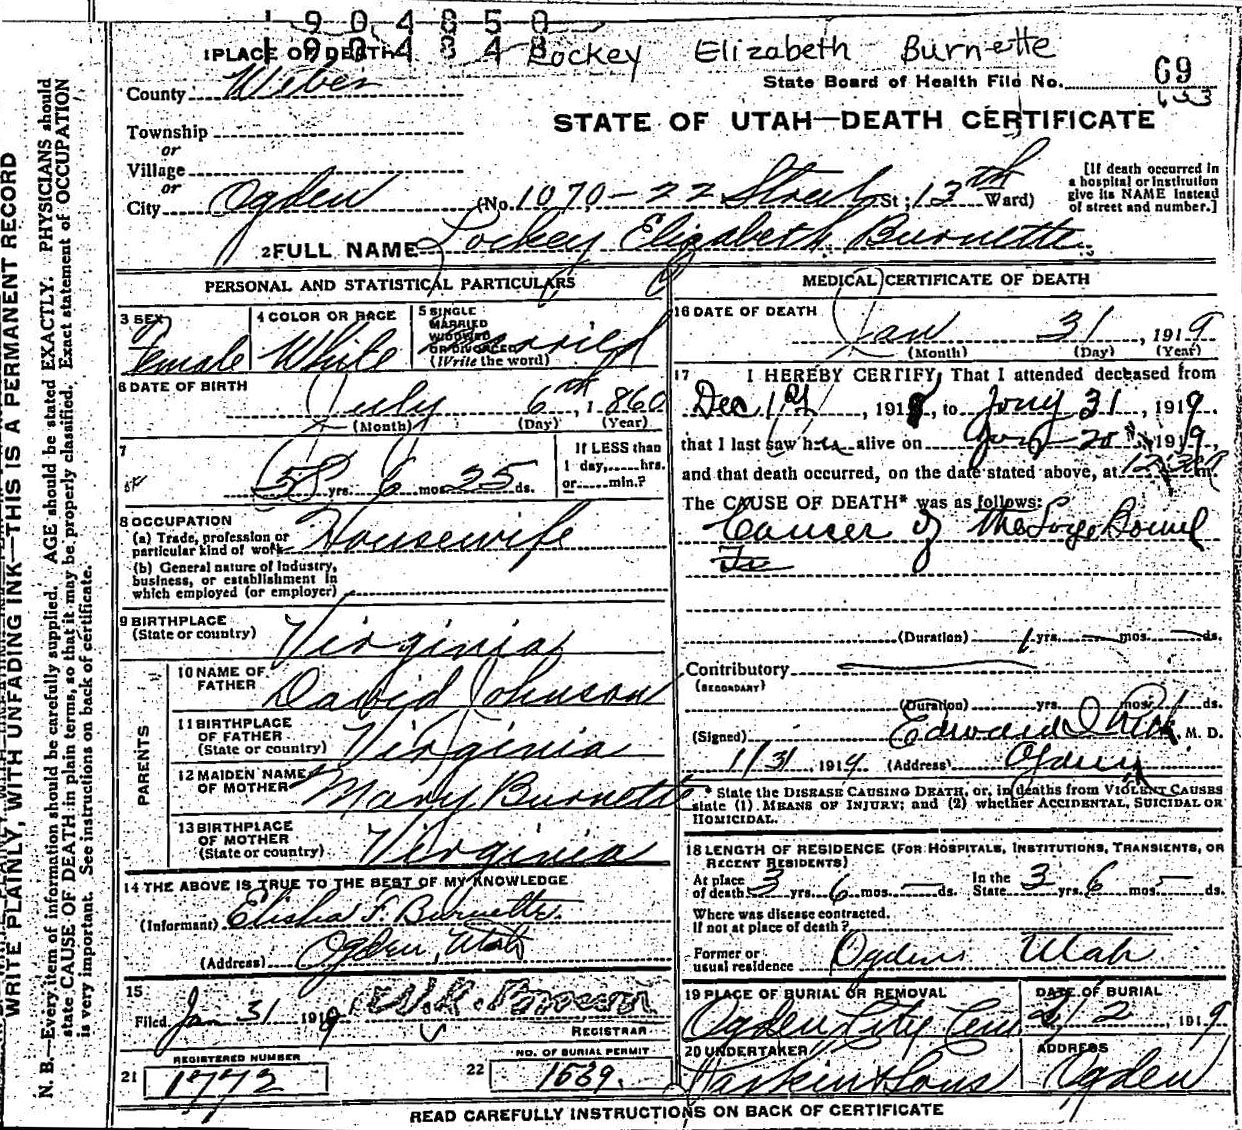 1904850
1904348
Lockey Elizabeth Burnette
1 PLACE OF DEATH
County Weber
State Board of Health File No. 69
653
STATE OF UTAH—DEATH CERTIFICATE
Township
or
Village
or
City Ogden (No. 1070-22 Street St; 13th Ward)
[If death occurred in a hospital or institution give its NAME instead of street and number.]
2 FULL NAME Lockey Elizabeth Burnette
PERSONAL AND STATISTICAL PARTICULARS
3 SEX Female
4 COLOR OR RACE White
5 SINGLE MARRIED WIDOWED OR DIVORCED (Write the word) Married
6 DATE OF BIRTH
July 6th, 1860
(Month) (Day) (Year)
7
58 yrs. 6 mos. 25 ds.
If LESS than
1 day,......hrs.
or......min.?
8 OCCUPATION
(a) Trade, profession or particular kind of work Housewife
(b) General nature of Industry, business, or establishment in which employed (or employer)
9 BIRTHPLACE
(State or country) Virginia
PARENTS
10 NAME OF FATHER David Johnson
11 BIRTHPLACE OF FATHER (State or country) Virginia
12 MAIDEN NAME OF MOTHER Mary Burnette
13 BIRTHPLACE OF MOTHER (State or country) Virginia
14 THE ABOVE IS TRUE TO THE BEST OF MY KNOWLEDGE
(Informant) Elisha F. Burnette
(Address) Ogden, Utah
15
Filed Jan 31 1919
REGISTRAR
REGISTERED NUMBER
21 1772
NO. OF BURIAL PERMIT
22 1539.
MEDICAL CERTIFICATE OF DEATH
16 DATE OF DEATH
Jan 31, 1919
(Month) (Day) (Year)
17 I HEREBY CERTIFY, That I attended deceased from
Dec 1st, 1918, to Jany 31, 1919,
that I last saw her alive on Jany 20, 1919,
and that death occurred, on the date stated above, at m.
The CAUSE OF DEATH* was as follows:
Cancer of the Large Bowel
(Duration) 1 yrs. — mos. — ds.
Contributory
(SECONDARY)
(Duration) yrs. mos. ds.
(Signed) Edward I. M. D.
1/31, 1919 (Address) Ogden
* State the DISEASE CAUSING DEATH, or, in deaths from VIOLENT CAUSES
state (1) MEANS OF INJURY; and (2) whether ACCIDENTAL, SUICIDAL OR
HOMICIDAL.
18 LENGTH OF RESIDENCE (FOR HOSPITALS, INSTITUTIONS, TRANSIENTS, OR
RECENT RESIDENTS)
At place of death 3 yrs. 6 mos. — ds. In the State 3 yrs. 6 mos. — ds.
Where was disease contracted.
If not at place of death?
Former or usual residence Ogden Utah
19 PLACE OF BURIAL OR REMOVAL Ogden City Cem
DATE OF BURIAL 2/2, 1919
20 UNDERTAKER Larkin & Sons
ADDRESS Ogden
READ CAREFULLY INSTRUCTIONS ON BACK OF CERTIFICATE
WRITE PLAINLY, WITH UNFADING INK—THIS IS A PERMANENT RECORD
N. B.—Every item of information should be carefully supplied. AGE should be stated EXACTLY. PHYSICIANS should
state CAUSE OF DEATH in plain terms, so that it may be properly classified. Exact statement of OCCUPATION
is very important. See instructions on back of certificate.